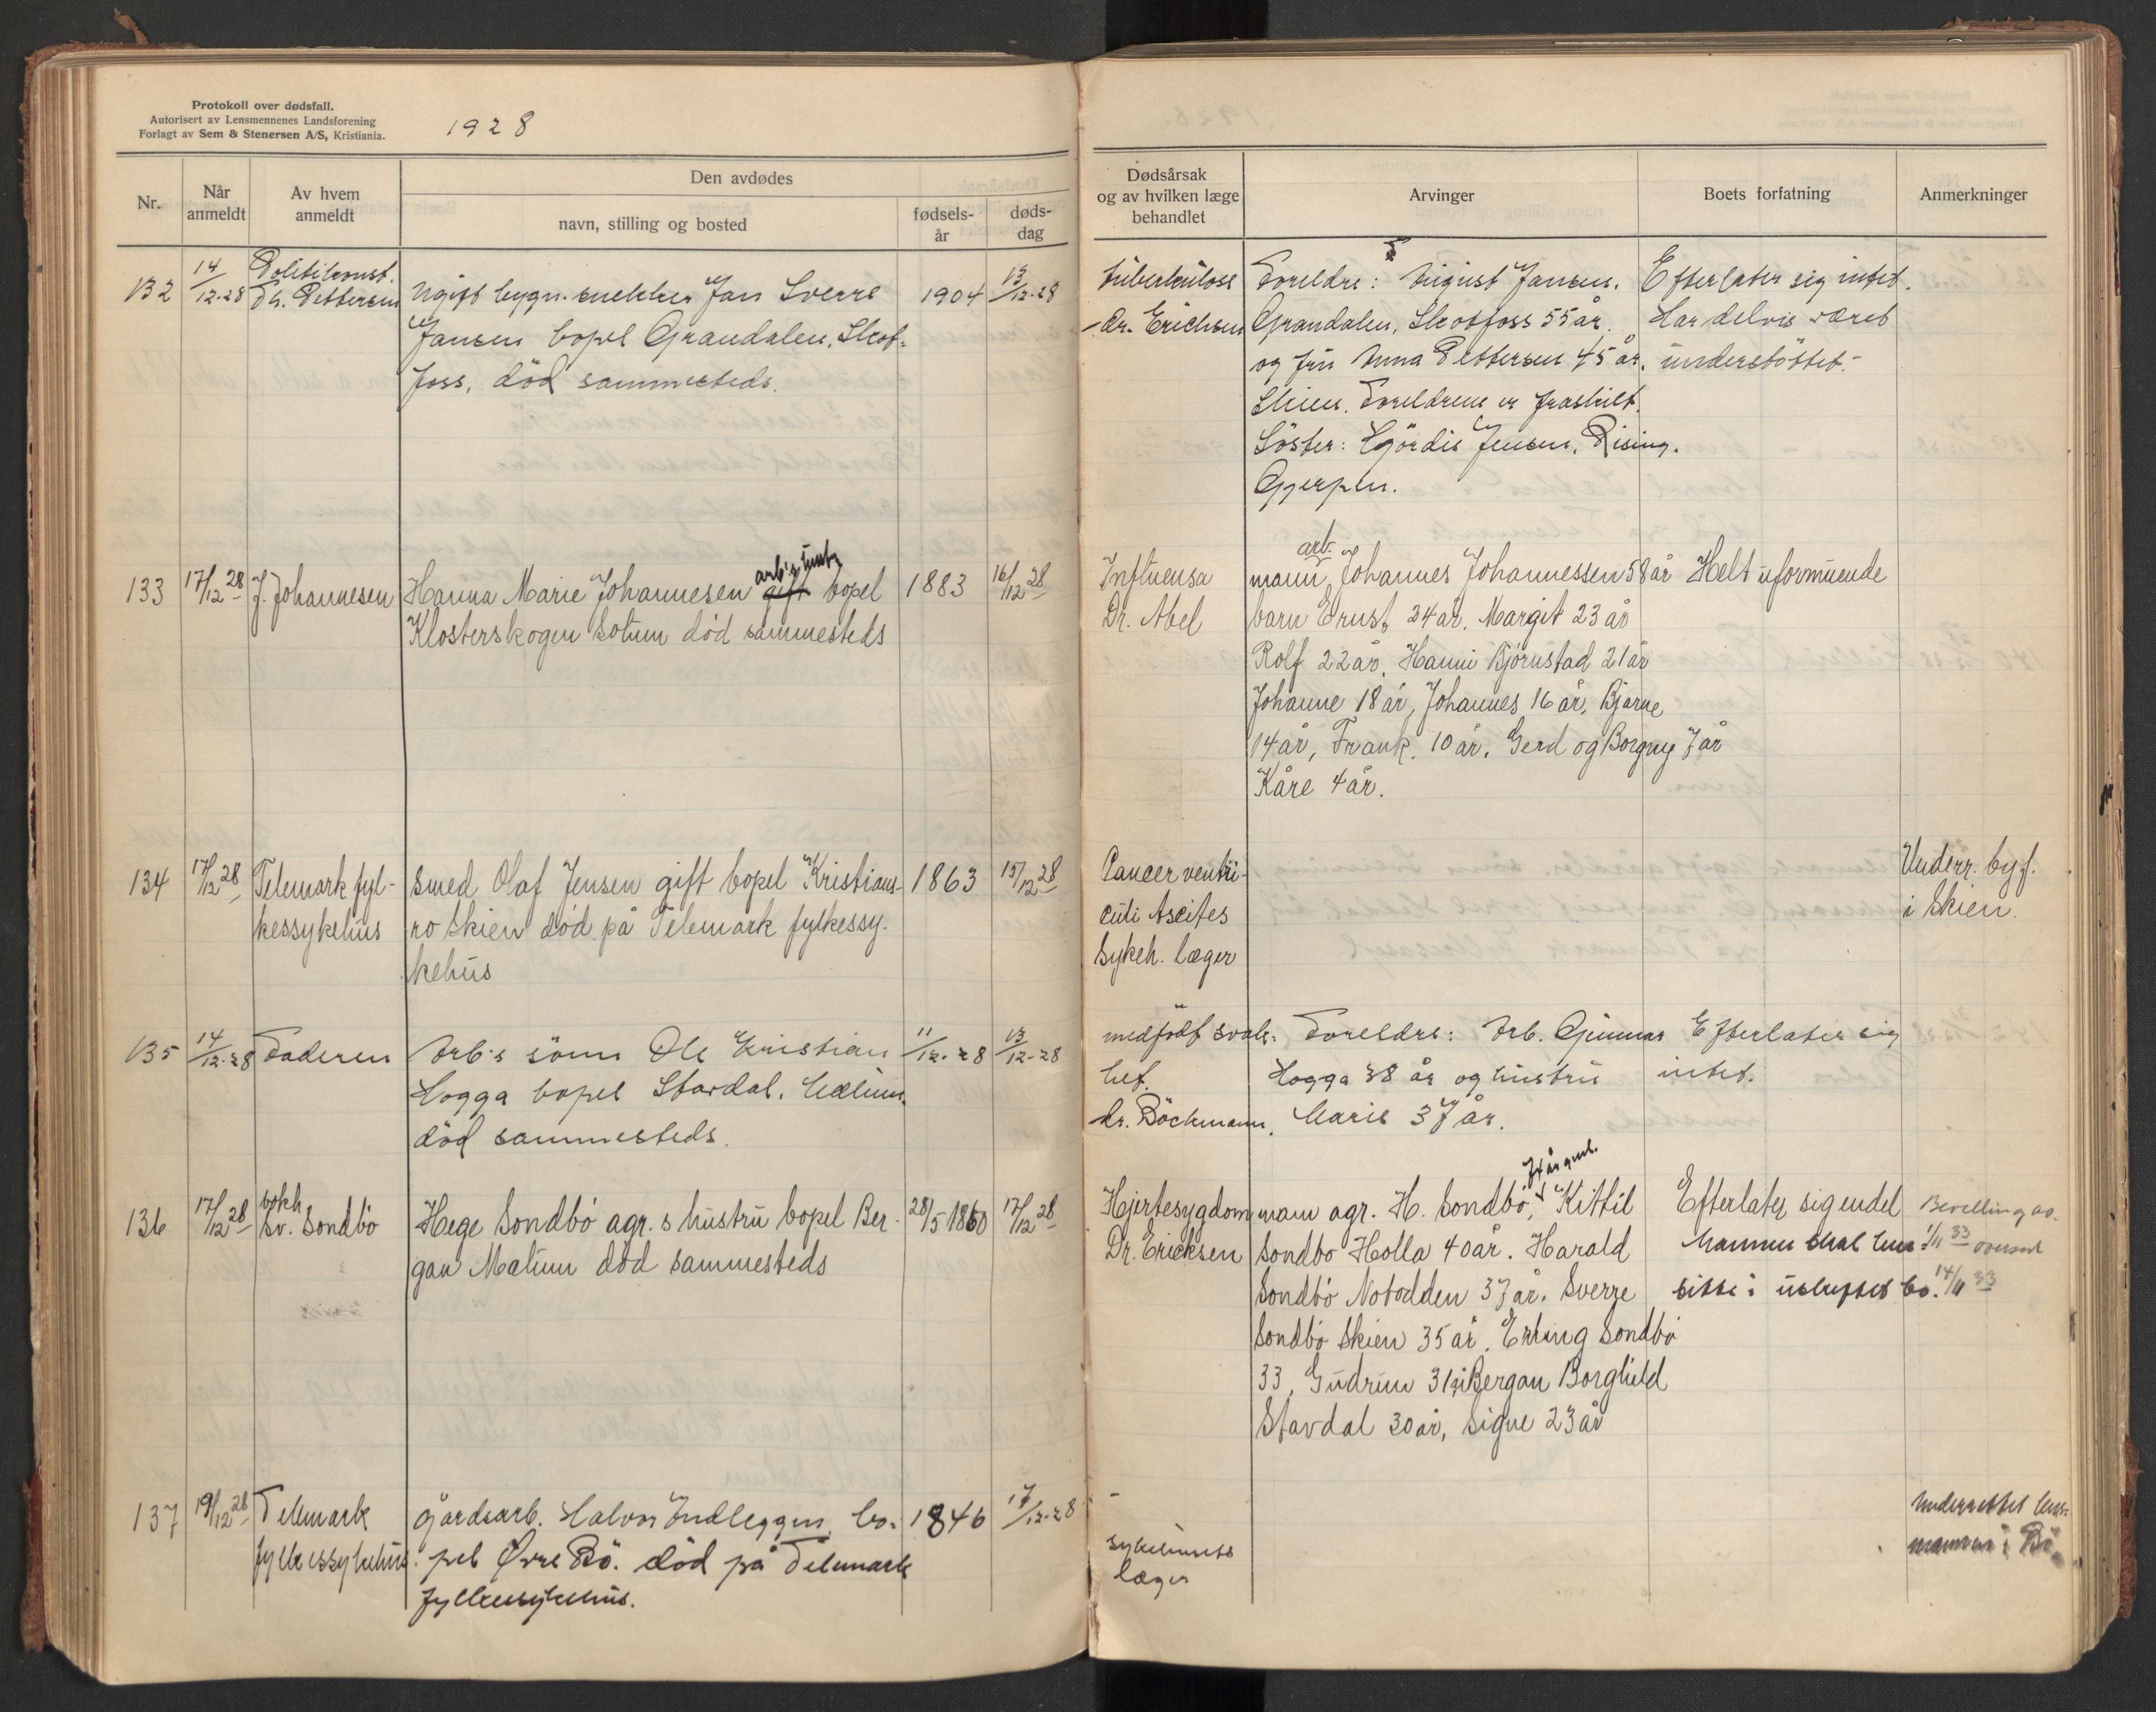 Protokoll over dødsfall.
Autorisert av Lensmennenes Landsforening
Forlagt av Sem & Stenersen A/S, Kristiania.
1928
Nr.
Når anmeldt
Av hvem anmeldt
Den avdødes
navn, stilling og bosted
fødsels-år
døds-dag
Dødsårsak
og av hvilken læge
behandlet
Arvinger
Boets forfatning
Anmerkninger
132
14/12-28
Politikonst.
Th. Pettersen
Ugift bygn. snekker Jan Sverre
Jansen bopel Grandalen, Skot-
foss, död sammesteds.
1904
13/12-28
tuberkulose
dr. Erichsen
Foreldre: August Jansen,
Grandalen, Skotfoss 55 år.
og fru Anna Pettersen 45 år,
Skien. Foreldrene er fraskilt.
Söster: Hjördis Jensen, Rising.
Gjerpen.
Efterlater sig intet.
Har delvis været
understöttet.-
133
17/12 28
J. Johannesen
arb.s hustr.
Hanna Marie Johannesen gift bopel
Klosterskogen Solum död sammesteds
1883
16/12 28
Influensa
Dr. Abel
arb.
mann, Johannes Johannessen 58 år
barn Ernst 24 år. Margit 23 år
Rolf 22 år, Hanni Bjørnstad 21 år
Johanne 18 år, Johannes 16 år, Bjarne
14 år, Frank. 10 år. Gerd og Borgny 7 år
Kåre 4 år.
Helt uformuende
134
17/12 28
Telemark fyl-
kessykehus
Smed Olaf Jensen gift bopel Kristians-
ro Skien död på Telemark fylkessy-
kehus
1863
15/12 28
Cancer ventri-
culi Ascites
Sykeh. læger
Underr. byf.
i Skien.
135
14/12-28
Faderen
Arb.s sönn Ole Kristian
Hogga bopel Stavdal, Mælum.
död sammesteds.
11/12-28
13/12-28
medfödt svak-
het.
dr. Böckmann.
Foreldre: Arb. Gunnar
Hogga 38 år og hustru
Marie 37 år.
Efterlater sig
intet.
136
17/12 28
bokh.
Sv. Sondbö
Hege Sondbö agr.s hustru bopel Ber-
gan Mælum död sammesteds
28/5 1860
17/12 28
Hjertesygdom
Dr. Ericksen
mann agr. H. Sondbö, Kittil
Sondbo Holla 40 år. Harald
Sondbö Notodden 37 år. Sverre
Sondbö Skien 35 år. Erling Sondbö
33, Gudrun 31, Bergan Borghild
Stavdal 30 år, Signe 23 år
Efterlater sig endel
Mannen skal
sitte i uskiftet bo.
Bevilling av
1/11 33
14/11 33
137
19/12 28
Telemark
fylkessykehus.
Gårdsarb. Halvor Indleggen, bo-
pel Øvre Bö. död på Telemark
fylkessykehus.
1846
17/12-28
-
sykehusets
læger
Underrettet lens-
mannen i Bö